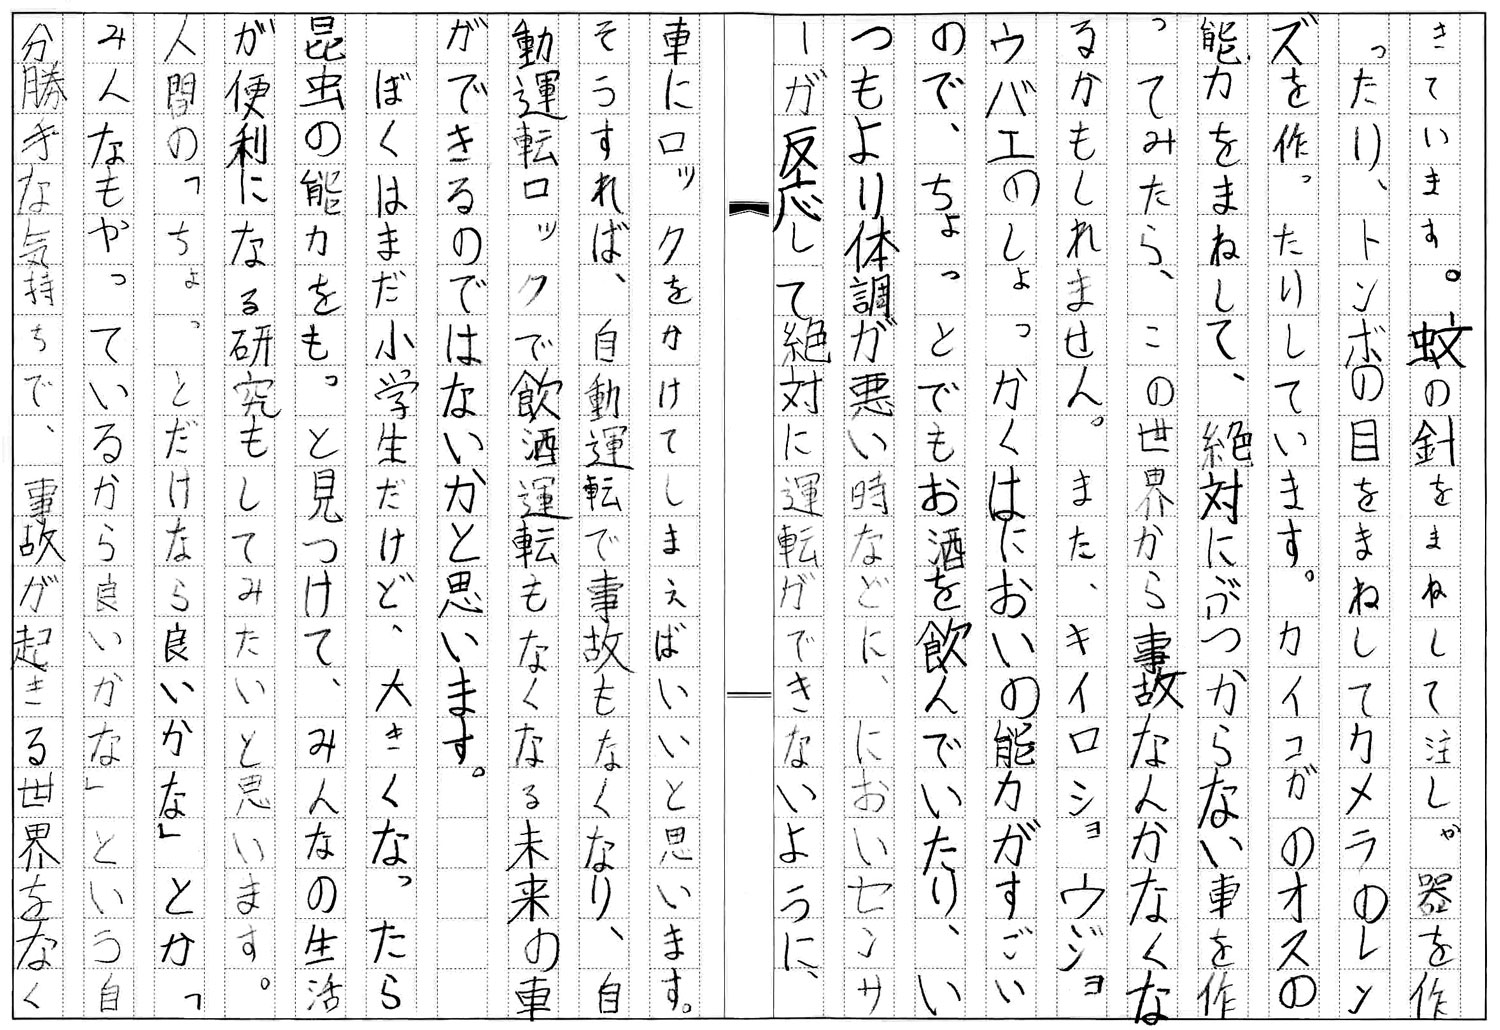 きています。蚊の針をまねして注しゃ器を作
ったり、トンボの目をまねしてカメラのレン
ズを作ったりしています。カイコガのオスの
能力をまねして、絶対にぶつからない車を作
ってみたら、この世界から事故なんかなくな
るかもしれません。また、キイロショウジョ
ウバエのしょっかくはにおいの能力がすごい
ので、ちょっとでもお酒を飲んでいたり、い
つもより体調が悪い時などに、においセンサ
ーが反応して絶対に運転ができないように、
車にロックをかけてしまえばいいと思います。
そうすれば、自動運転で事故もなくなり、自
動運転ロックで飲酒運転もなくなる未来の車
ができるのではないかと思います。
ぼくはまだ小学生だけど、大きくなったら
昆虫の能力をもっと見つけて、みんなの生活
が便利になる研究もしてみたいと思います。
人間の「ちょっとだけなら良いかな」とか「
みんなもやっているから良いかな」という自
分勝手な気持ちで、事故が起きる世界をなく